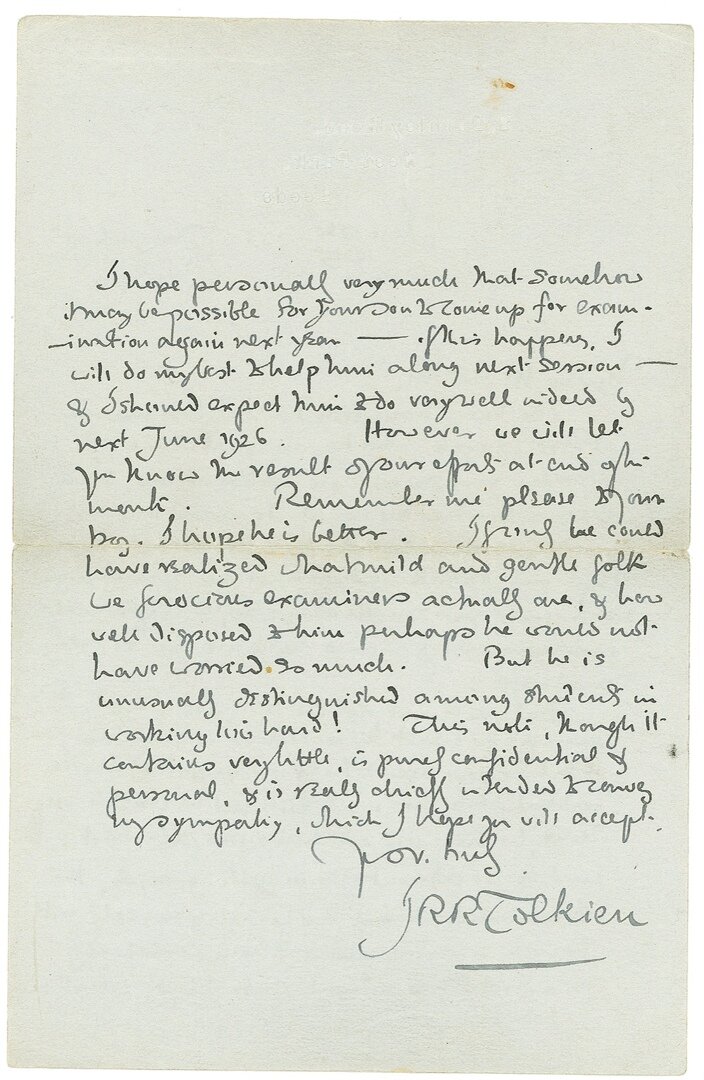 I hope personally very much that somehow
it may be possible for your son to come up for exam-
-ination again next year — if this happens, I
will do my best to help him along next session —
& I should expect him to do very well indeed by
next June 1926. However we will let
you know the result of our efforts at end of the
month. Remember me please to your
boy. I hope he is better. If only he could
have realized what mild and gentle folk
we ferocious examiners actually are, & how
well disposed to him perhaps he would not
have worried so much. But he is
unusually distinguished among students in
working too hard! This note, though it
contains very little, is purely confidential &
personal, & is really chiefly intended to convey
my sympathy, which I hope you will accept.
Yrs. truly
JRRTolkien